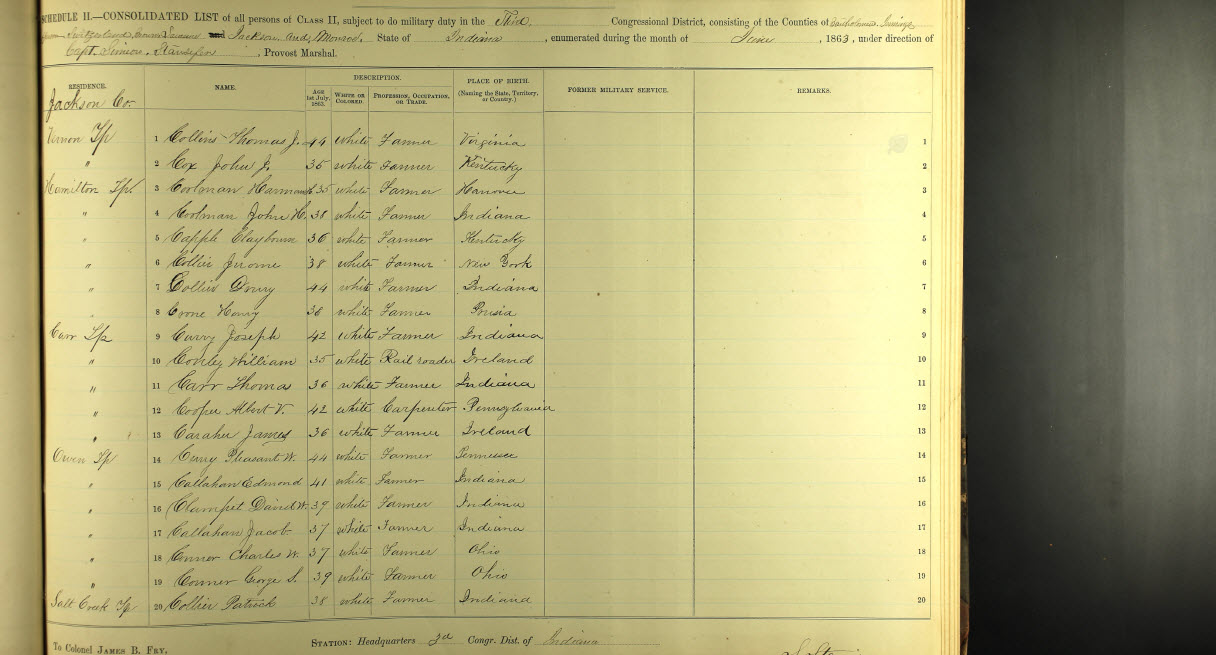 SCHEDULE II.—CONSOLIDATED LIST of all persons of CLASS II, subject to do military duty in the Third Congressional District, consisting of the Counties of Bartholomew Jennings
Switzerland, Brown Jackson, and Monroe, State of Indiana, enumerated during the month of June, 1863, under direction of
Capt. Simeon Stansifer, Provost Marshal.
RESIDENCE. NAME. DESCRIPTION. PLACE OF BIRTH. FORMER MILITARY SERVICE. REMARKS.
AGE 1st July, 1863. WHITE OR COLORED. PROFESSION, OCCUPATION, OR TRADE. (Naming the State, Territory, or Country.)
Jackson Co.
Vernon Tp 1 Collins Thomas J. 44 white Farmer Virginia 1
" 2 Cox John J. 35 white Farmer Kentucky 2
Hamilton Tp 3 Coolman Harman 35 white Farmer Hanover 3
" 4 Coolman John H. 38 white Farmer Indiana 4
" 5 Capple Claybourn 36 white Farmer Kentucky 5
" 6 Collier Jerome 38 white Farmer New York 6
" 7 Collier Doury 44 white Farmer Indiana 7
" 8 Crone Henry 36 white Farmer Prusia 8
Carr Tp 9 Curry Joseph 42 white Farmer Indiana 9
" 10 Conley William 35 white Rail roader Ireland 10
" 11 Carr Thomas 36 white Farmer Indiana 11
" 12 Cooper Albert V. 42 white Carpenter Pennsylvania 12
" 13 Caraher James 36 white Farmer Ireland 13
Owen Tp 14 Curry Pleasant W. 44 white Farmer Tennessee 14
" 15 Callahan Edmond 41 white Farmer Indiana 15
" 16 Clampet David W. 39 white Farmer Indiana 16
" 17 Callahan Jacob 37 white Farmer Indiana 17
" 18 Connor Charles W. 37 white Farmer Ohio 18
" 19 Conner George S. 39 white Farmer Ohio 19
Salt Creek Tp 20 Collier Patrick 38 white Farmer Indiana 20
STATION: Headquarters 3d Congr. Dist. of Indiana
To Colonel JAMES B. FRY,